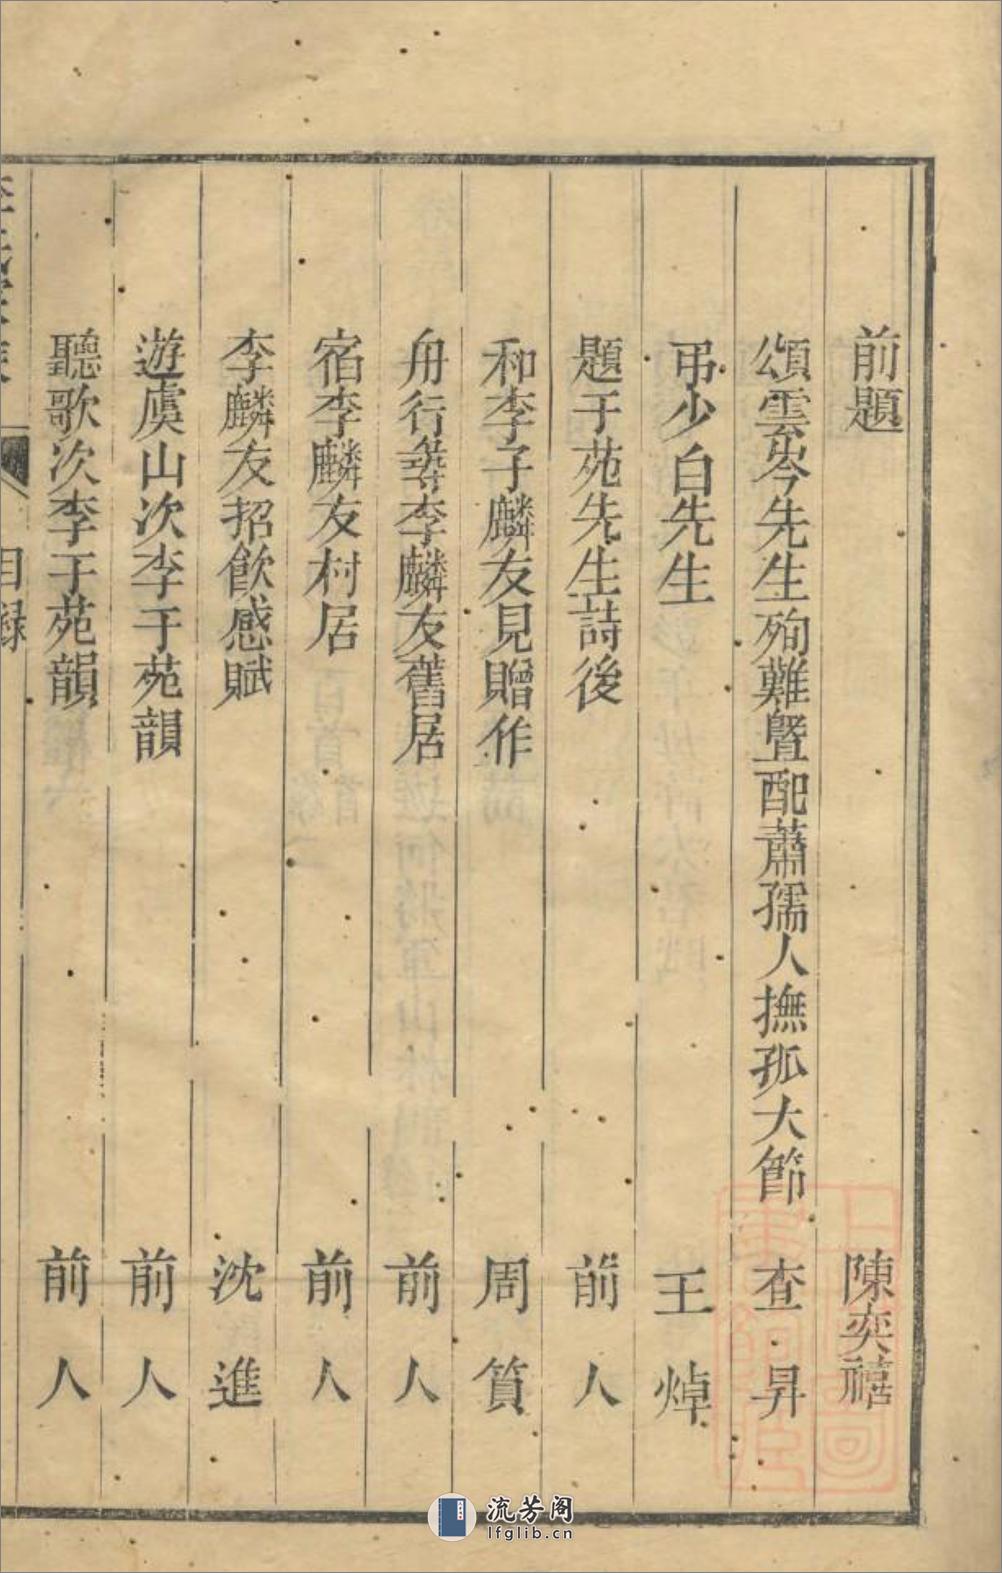 前題 陳奕禧
頌雲岑先生殉難曁配蕭孺人撫孤大節 查昇
弔少白先生 王焯
題于苑先生詩後 前人
和李子麟友見贈作 周篔
舟行尋李麟友舊居 前人
宿李麟友村居 前人
李麟友招飮感賦 沈進
遊虞山次李于苑韻 前人
聽歌次李于苑韻 前人
目錄
流芳阁
lfglib.cn